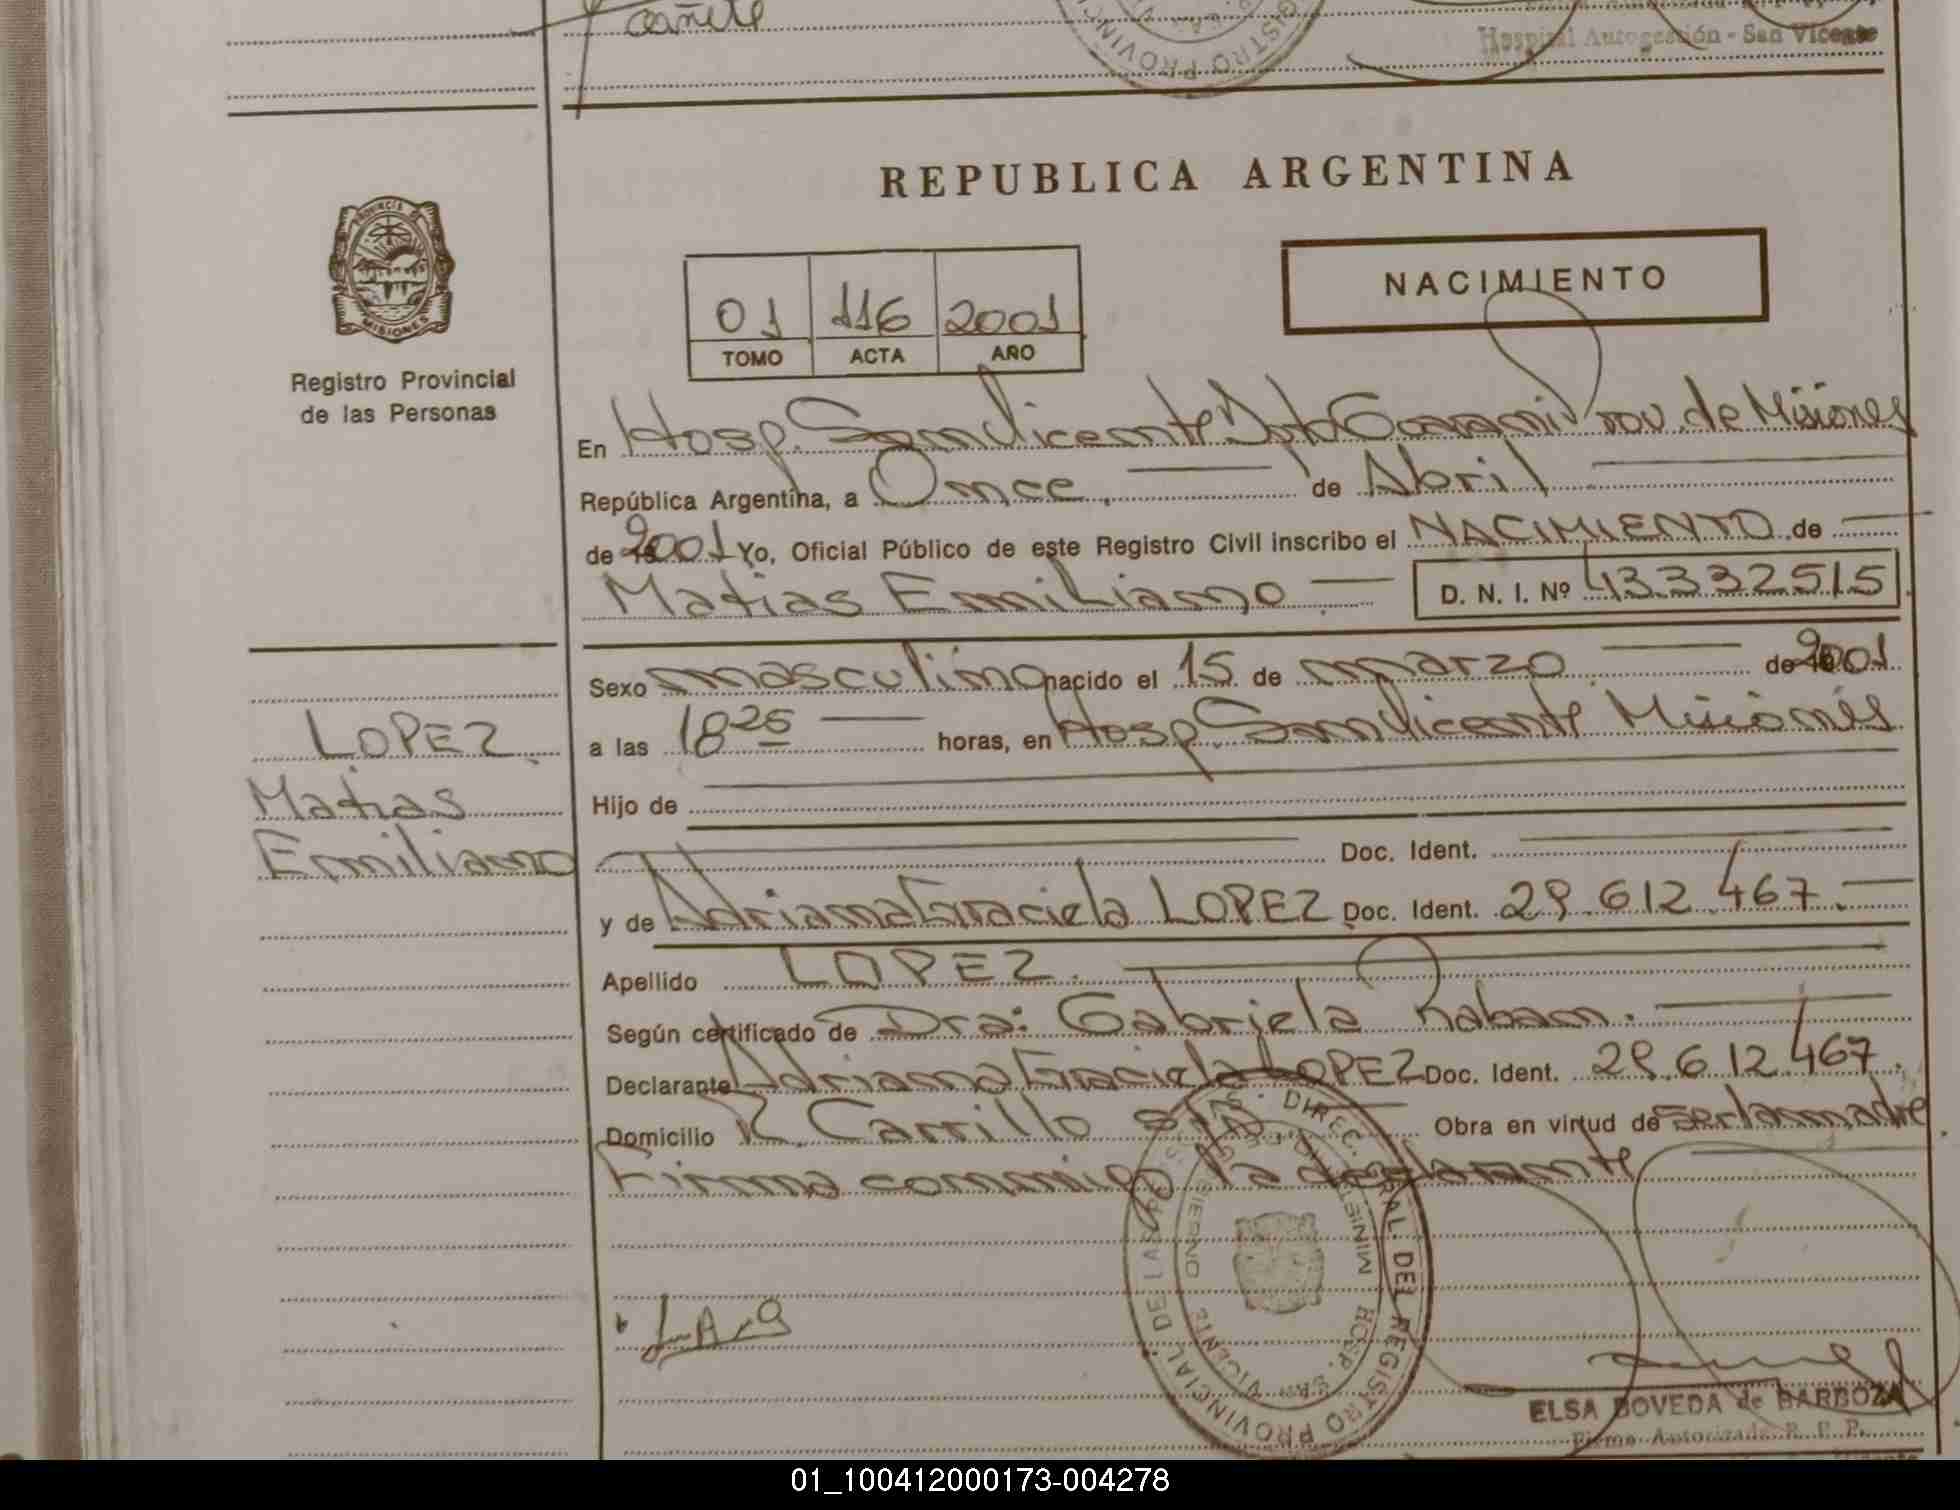 cañete
Hospital Autogestión - San Vicente
REPUBLICA ARGENTINA
PROVINCIA DE
MISIONES
Registro Provincial
de las Personas
01 116 2001
TOMO ACTA AÑO
NACIMIENTO
En Hosp. San Vicente Dpto Guarani Prov. de Misiones
República Argentina, a Once de Abril
de 2001 Yo, Oficial Público de este Registro Civil inscribo el NACIMIENTO de
Matias Emiliano D. N. I. Nº 43.332515
Sexo masculino nacido el 15 de marzo de 2001
a las 18 25 horas, en Hosp San Vicente Misiones
Hijo de
Doc. Ident.
y de Adriana Graciela LOPEZ Doc. Ident. 29.612.467.
Apellido LOPEZ.
Según certificado de Dra: Gabriela Raban.
Declarante Adriana Graciela LOPEZ Doc. Ident. 29.612.467.
Domicilio R. Carrillo s/n Obra en virtud de ser la madre
Firma conmigo la declarante
LOPEZ
Matias
Emiliano
L.A.G
DIREC. GRAL. DEL REGISTRO PROVINCIAL DE LAS PERS.
HOSP. SAN VICENTE
ELSA BOVEDA de BARBOZA
Firma Autorizada R. P. P.
01_100412000173-004278